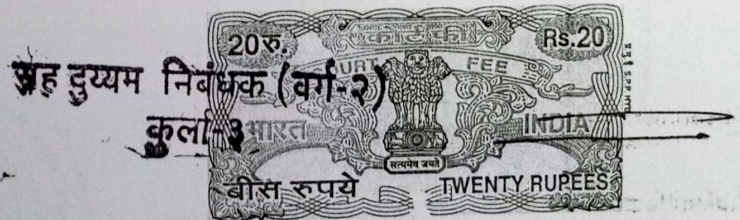 20रु. कोर्ट फी Rs.20
COURT FEE
सह दुय्यम निबंधक (वर्ग-२)
कुर्ला-३
भारत INDIA
सत्यमेव जयते
बीस रुपये TWENTY RUPEES